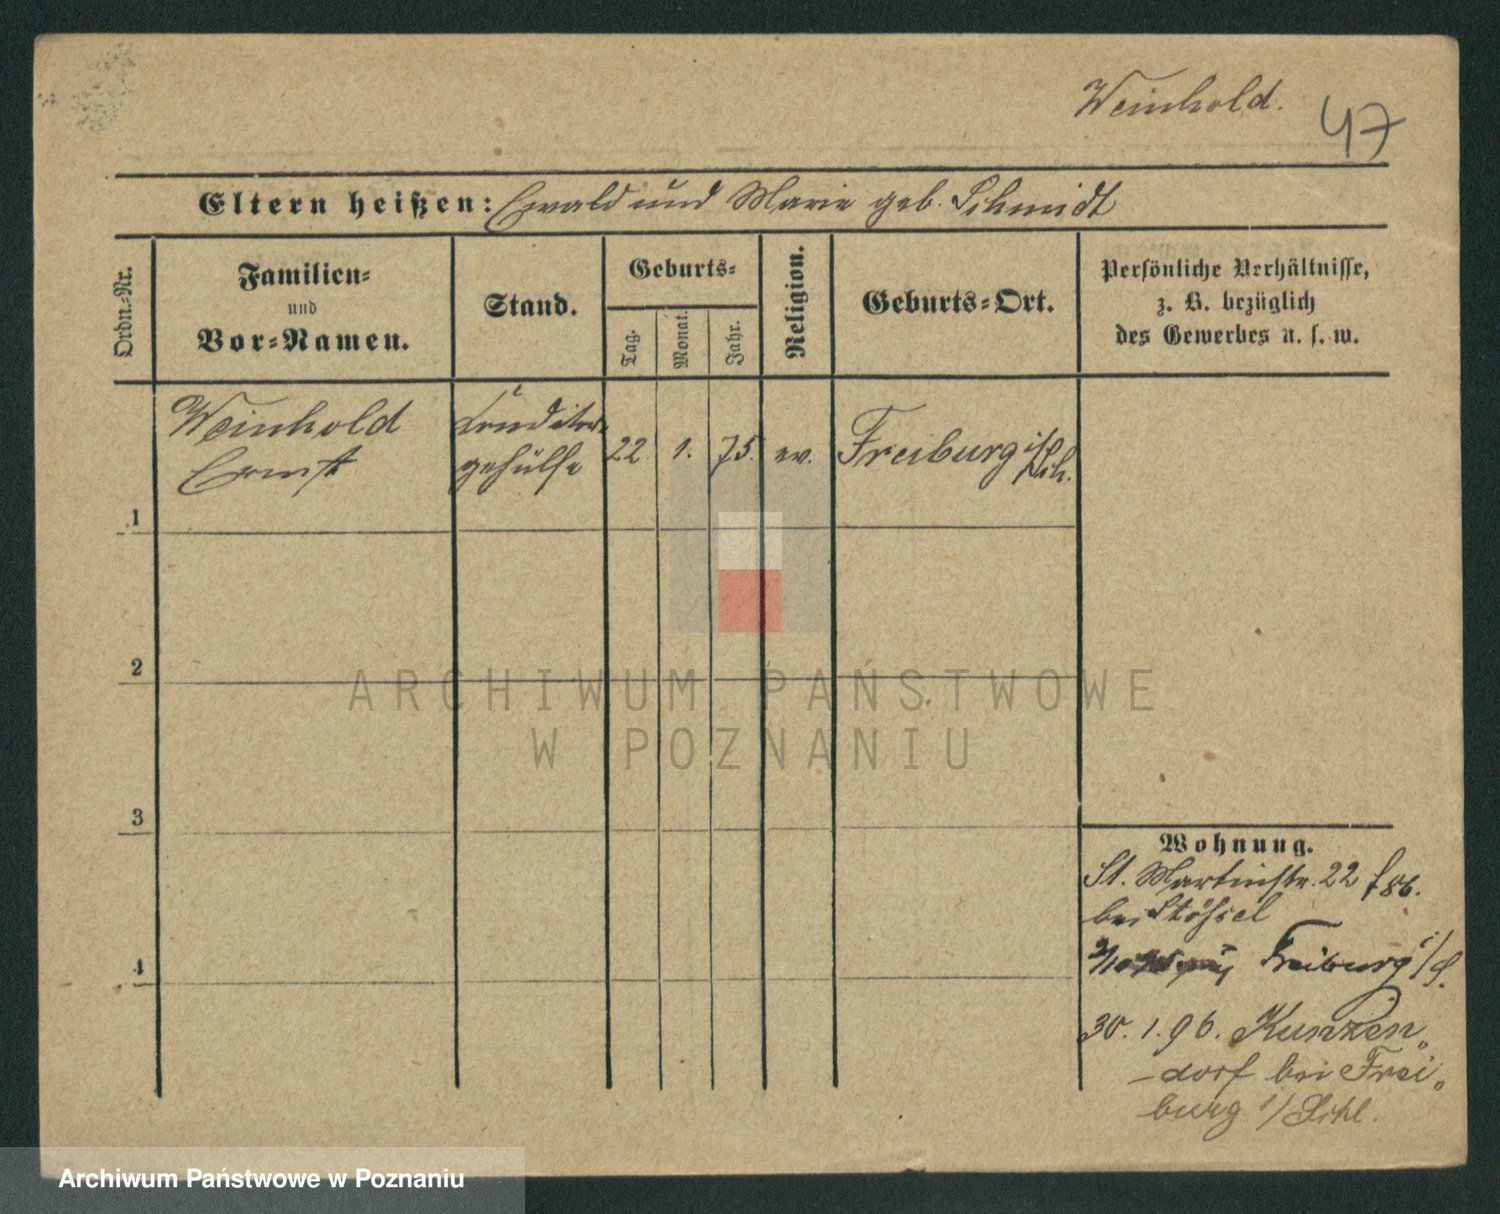 Weinhold.
47
Eltern heißen: Ewald und Marie geb. Schmidt
Ordn.-Nr.
Familien-
und
Vor-Namen.
Stand.
Geburts-
Tag.
Monat.
Jahr.
Religion.
Geburts-Ort.
Persönliche Verhältnisse,
z. B. bezüglich
des Gewerbes u. s. w.
Weinhold
Ernst
Conditor-
gehülfe
22. 1. 75. ev. Freiburg i/
Sch.
1
2
3
4
ARCHIWUM PAŃSTWOWE
W POZNANIU
Wohnung.
St. Martinstr. 22
bei
Freiburg i/S.
30. 1. 96. Kunzen-
dorf bei Frei-
burg i/Schl.
Archiwum Państwowe w Poznaniu